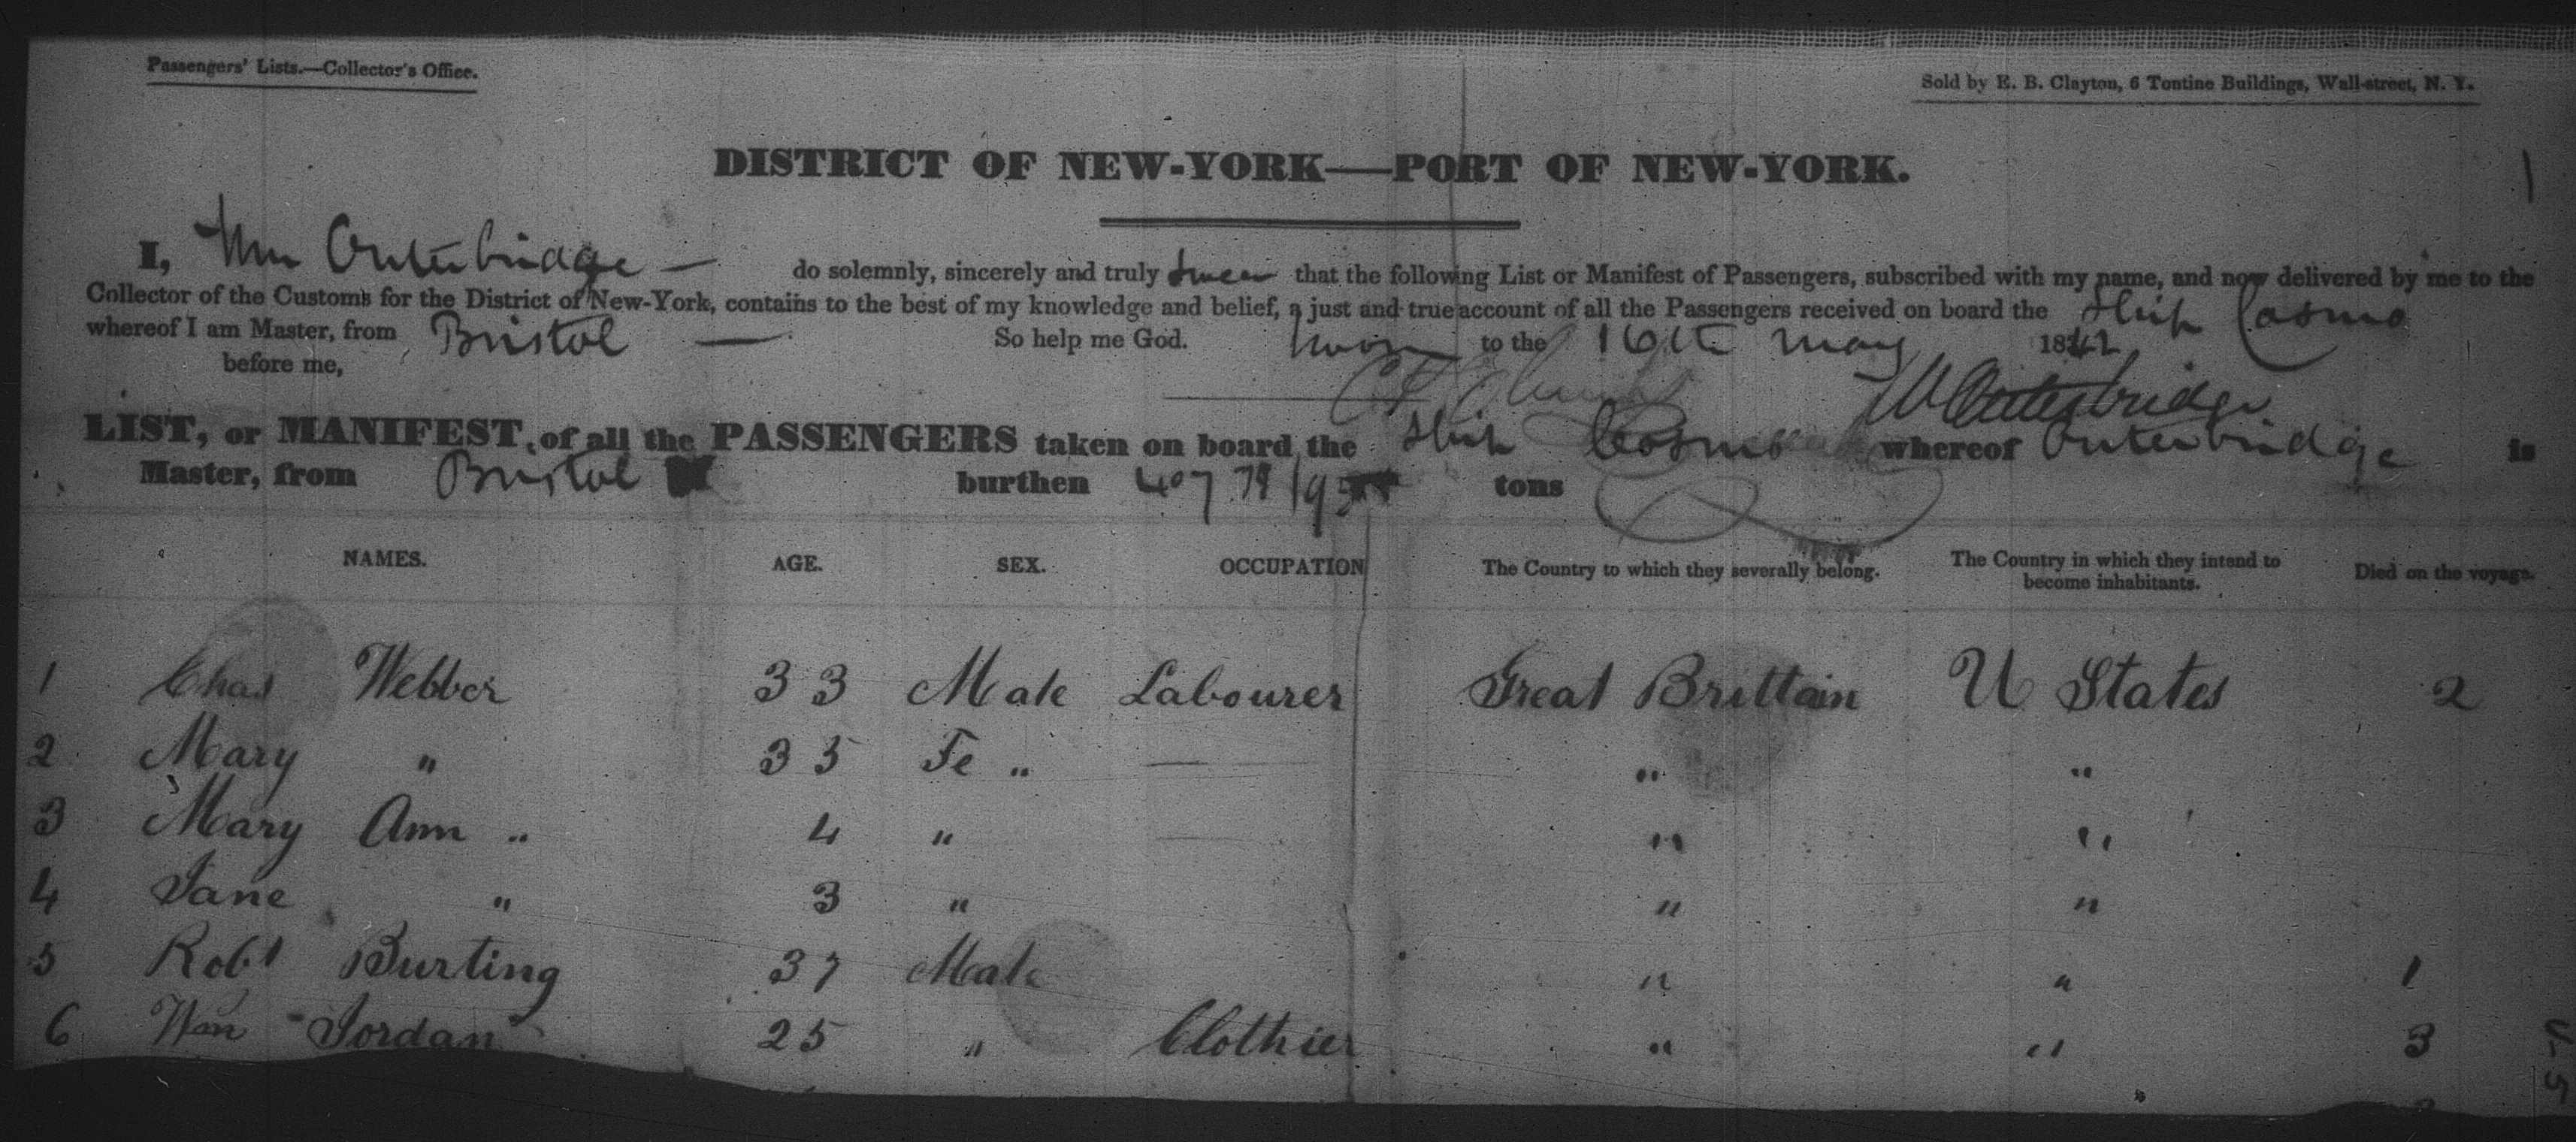 Passengers' Lists.—Collector's Office.
Sold by E. B. Clayton, 6 Tontine Buildings, Wall-street, N. Y.
DISTRICT OF NEW-YORK—PORT OF NEW-YORK.
I, Wm Outerbridge — do solemnly, sincerely and truly swear that the following List or Manifest of Passengers, subscribed with my name, and now delivered by me to the
Collector of the Customs for the District of New-York, contains to the best of my knowledge and belief, a just and true account of all the Passengers received on board the Ship Cosmo
whereof I am Master, from Bristol — So help me God. to the 16th May 1842
before me, W Outerbridge
LIST, or MANIFEST, of all the PASSENGERS taken on board the Ship Cosmo whereof Outerbridge is
Master, from Bristol burthen 407 78/95 tons
NAMES. AGE. SEX. OCCUPATION The Country to which they severally belong. The Country in which they intend to become inhabitants. Died on the voyage.
1 Chas Webber 33 Male Labourer Great Brittain U States 2
2 Mary " 35 Fe " — " "
3 Mary Ann " 4 " — " "
4 Jane " 3 " " "
5 Robt Burting 37 Male " " 1
6 Wm Jordan 25 " Clothier " " 3